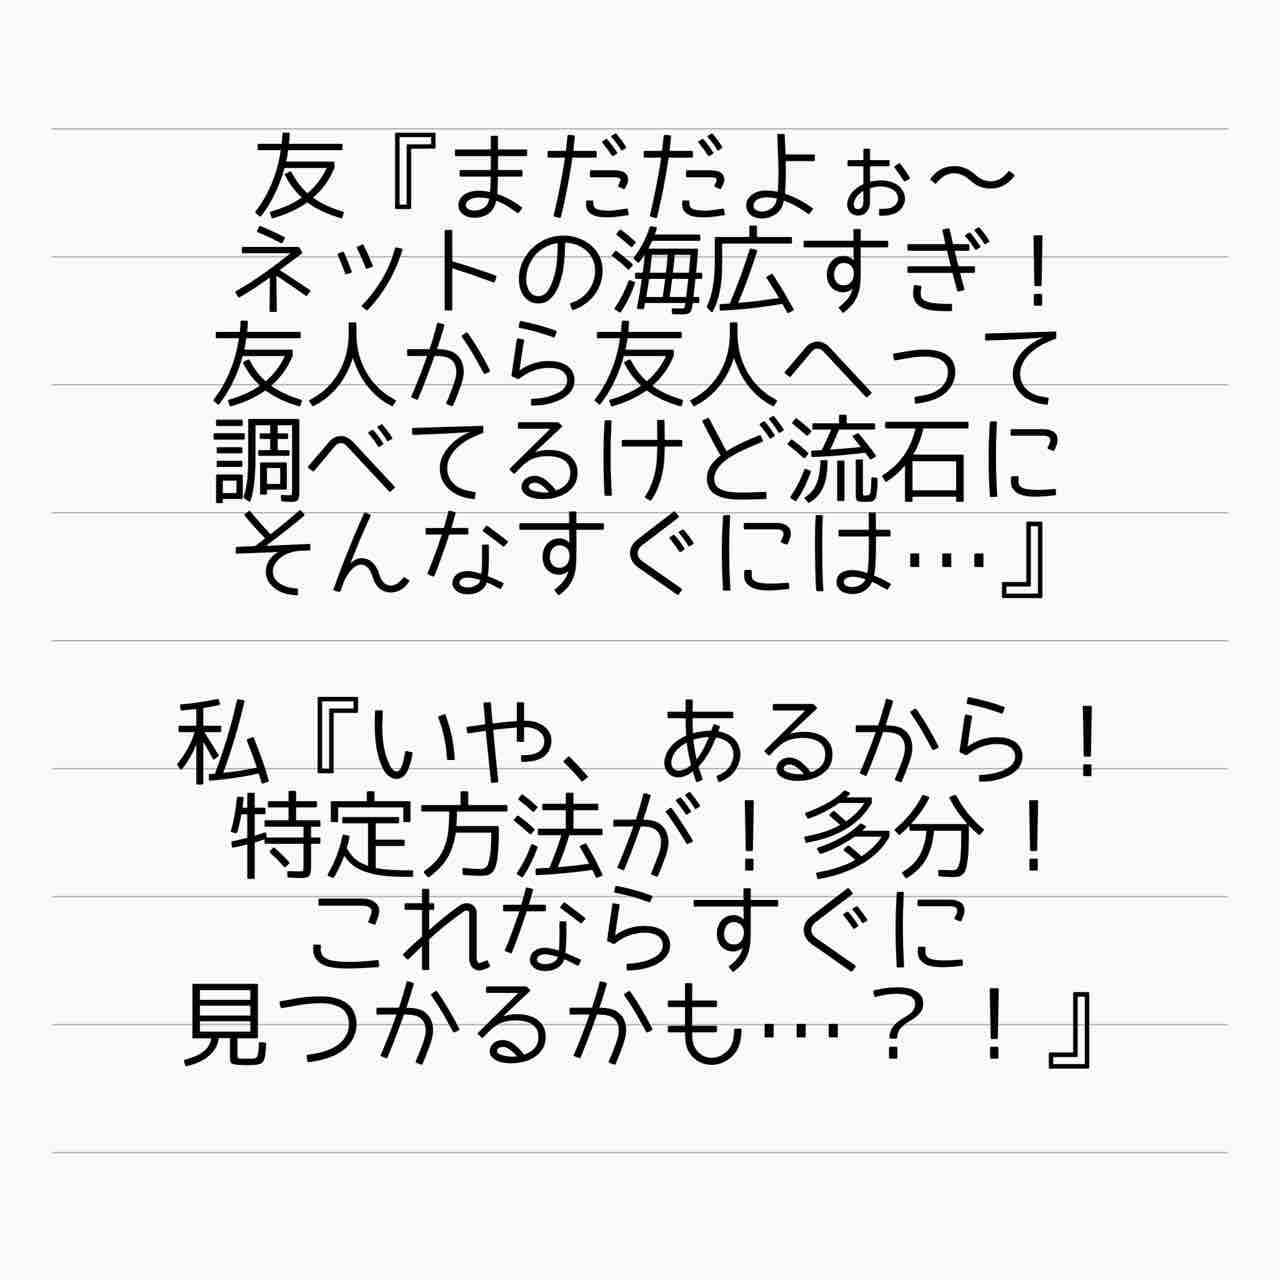 友『まだだよぉ〜
ネットの海広すぎ！
友人から友人へって
調べてるけど流石に
そんなすぐには…』
私『いや、あるから！
特定方法が！多分！
これならすぐに
見つかるかも…？！』